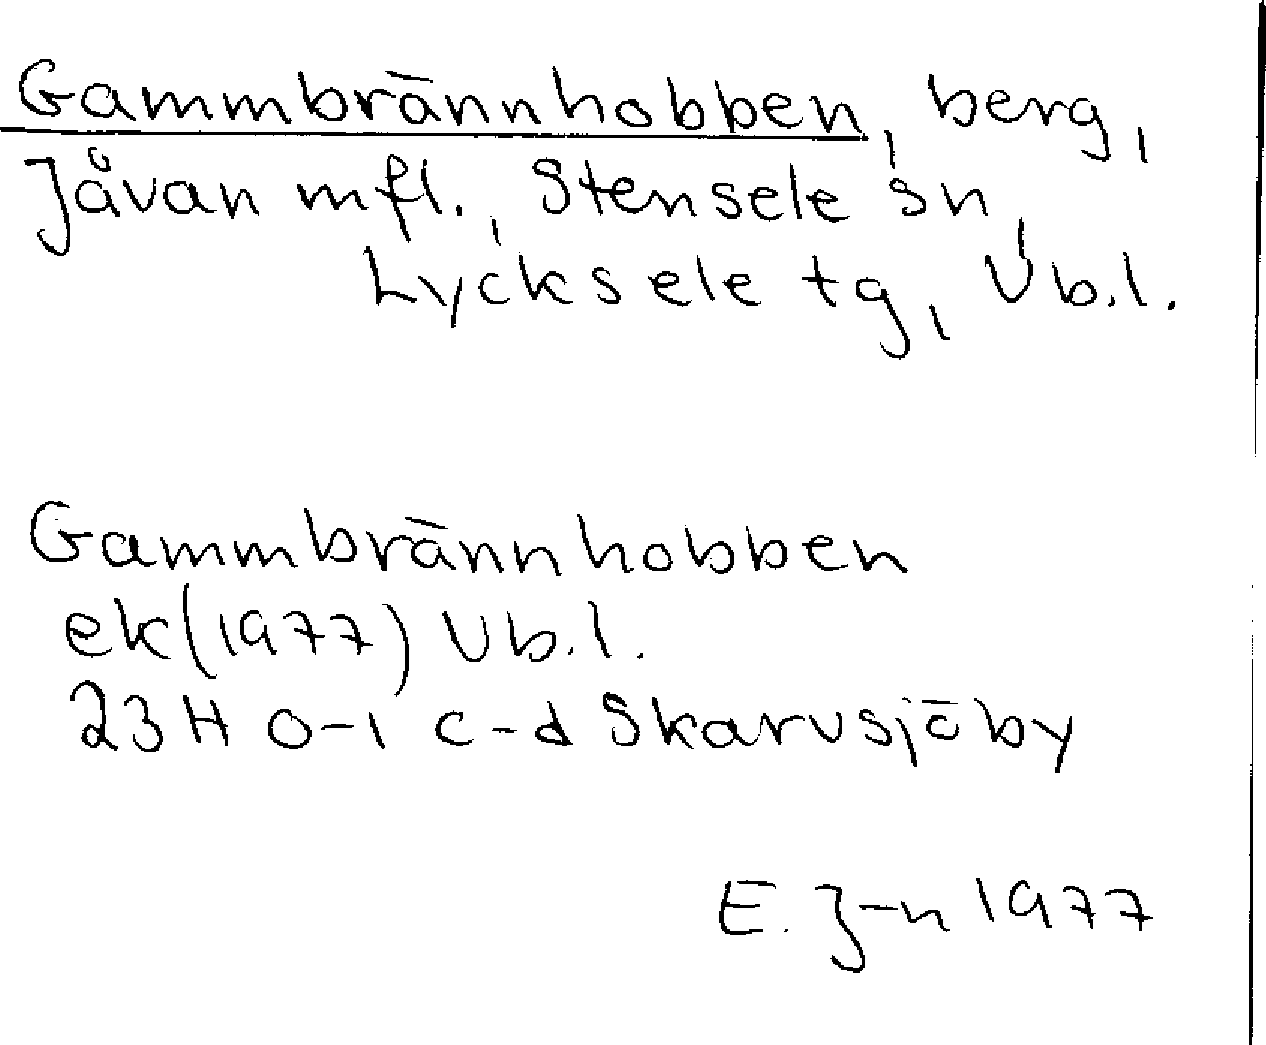 Gammbrännhobben, berg,
Jåvan mfl., Stensele sn,
Lycksele tg, Vb.l.
Gammbrännhobben
ek(1977) Vb.l.
23H 0-1 c-d Skarvsjöby
E. J-n 1977